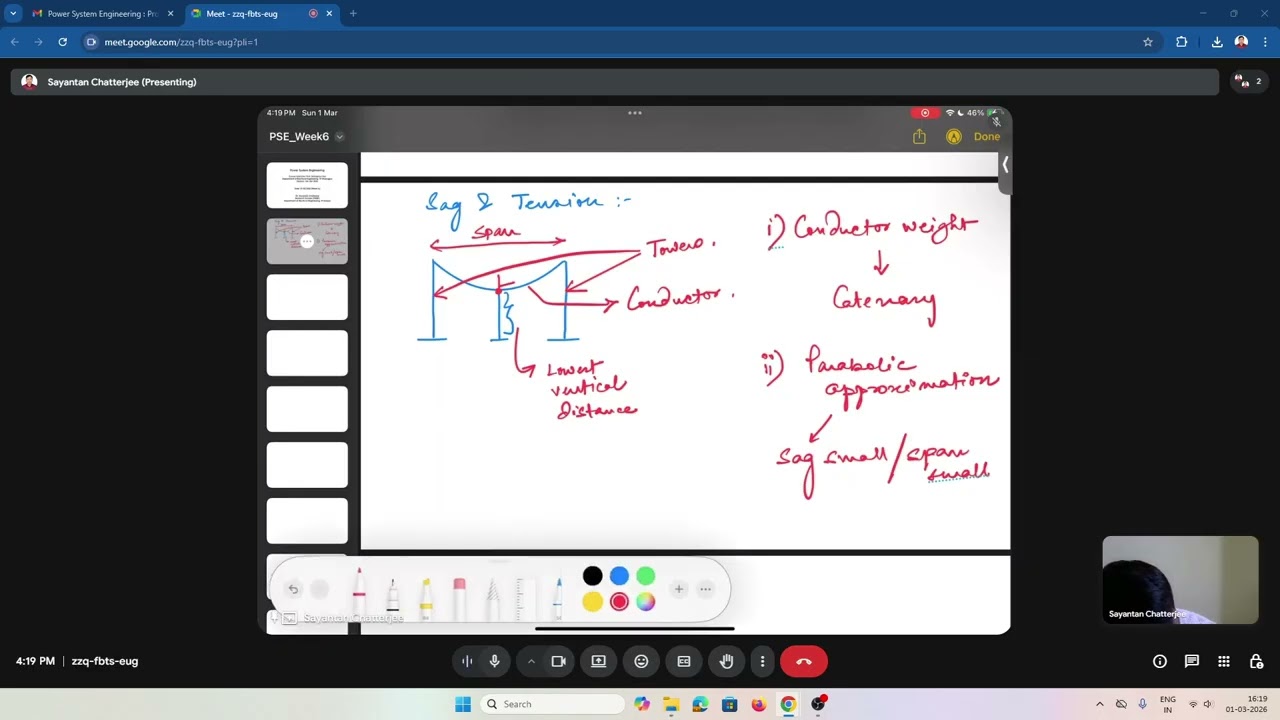 Power System Engineering : Pro
Meet - zzq-fbts-eug
meet.google.com/zzq-fbts-eug?pli=1
Sayantan Chatterjee (Presenting)
2
4:19 PM Sun 1 Mar
46%
PSE_Week6
Done
Sag & Tension :-
span
Towers.
Conductor.
Lowest
vertical
distance
i) Conductor weight
Catenary
ii) Parabolic
approximation
Sag small / span
small
Sayantan Chatterjee
Sayantan Chatterjee
4:19 PM | zzq-fbts-eug
Search
ENG
IN
16:19
01-03-2026